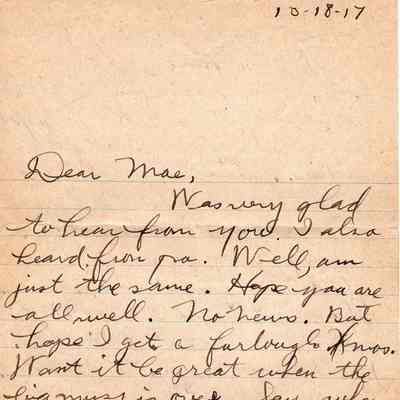 10-18-17
Dear Mae,
Was very glad
to hear from you. I also
heard from pa. Well, am
just the same. Hope you are
all well. No news. But
hope I get a furlough Xmas.
Wont it be great when the
big muss is over. Say, when